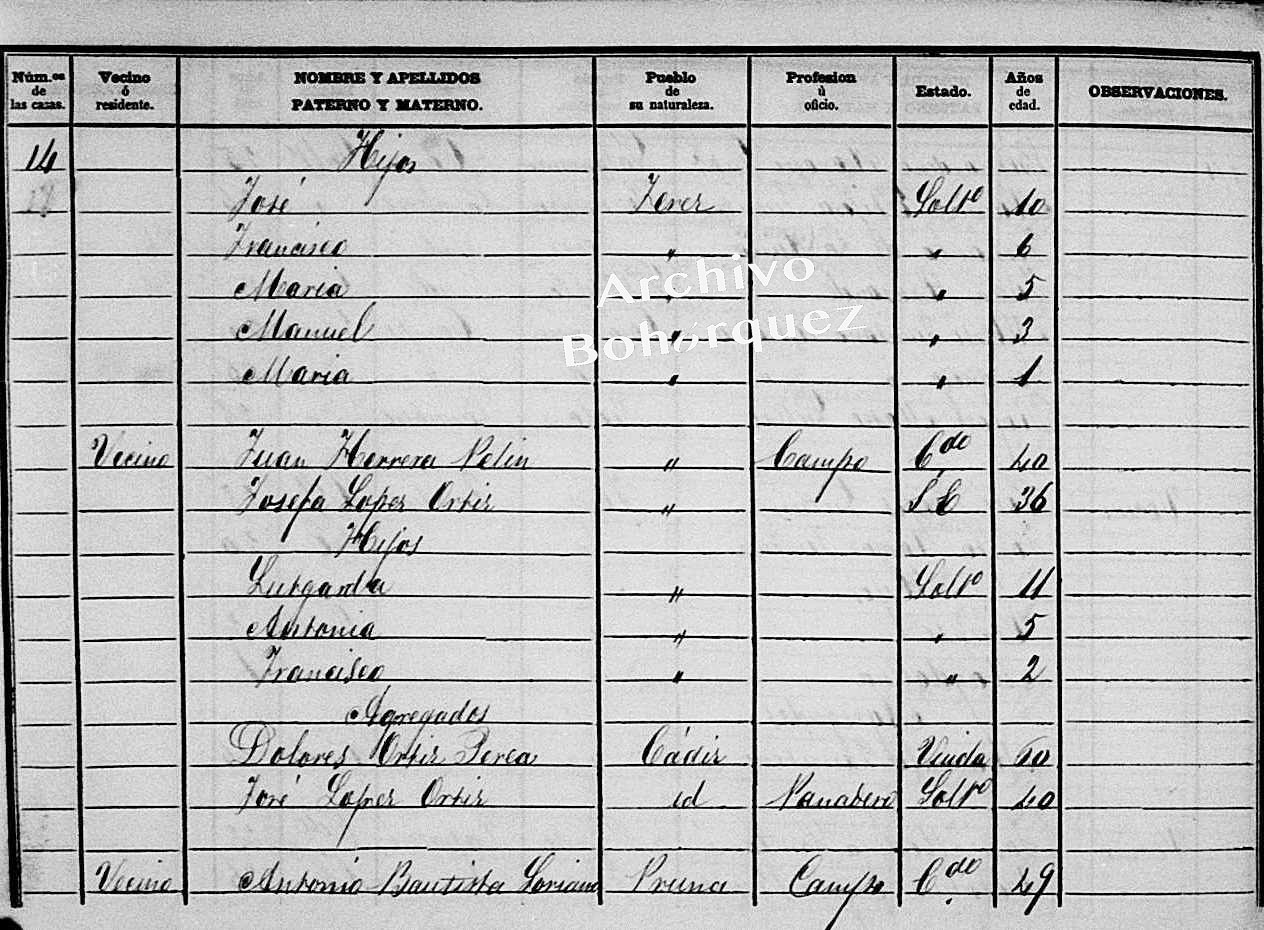 Núm.os de las casas. Vecino ó residente. NOMBRE Y APELLIDOS PATERNO Y MATERNO. Pueblo de su naturaleza. Profesion ù oficio. Estado. Años de edad. OBSERVACIONES.
14 Hijos
José Jerez Soltº 10
Francisco " " 6
Maria " " 5
Manuel " " 3
Maria " " 1
Archivo
Bohórquez
Vecino Juan Herrera " Campo Cdo 40
Josefa Lopez Ortiz " S E 36
Hijos
Lutgarda " Soltº 11
Antonia " " 5
Francisco " " 2
Agregados
Dolores Ortiz Perea Cádiz Viuda 60
José Lopez Ortiz id Panadero Soltº 40
Vecino Antonio Bautista Soriano Pruna Campo Cdo 49